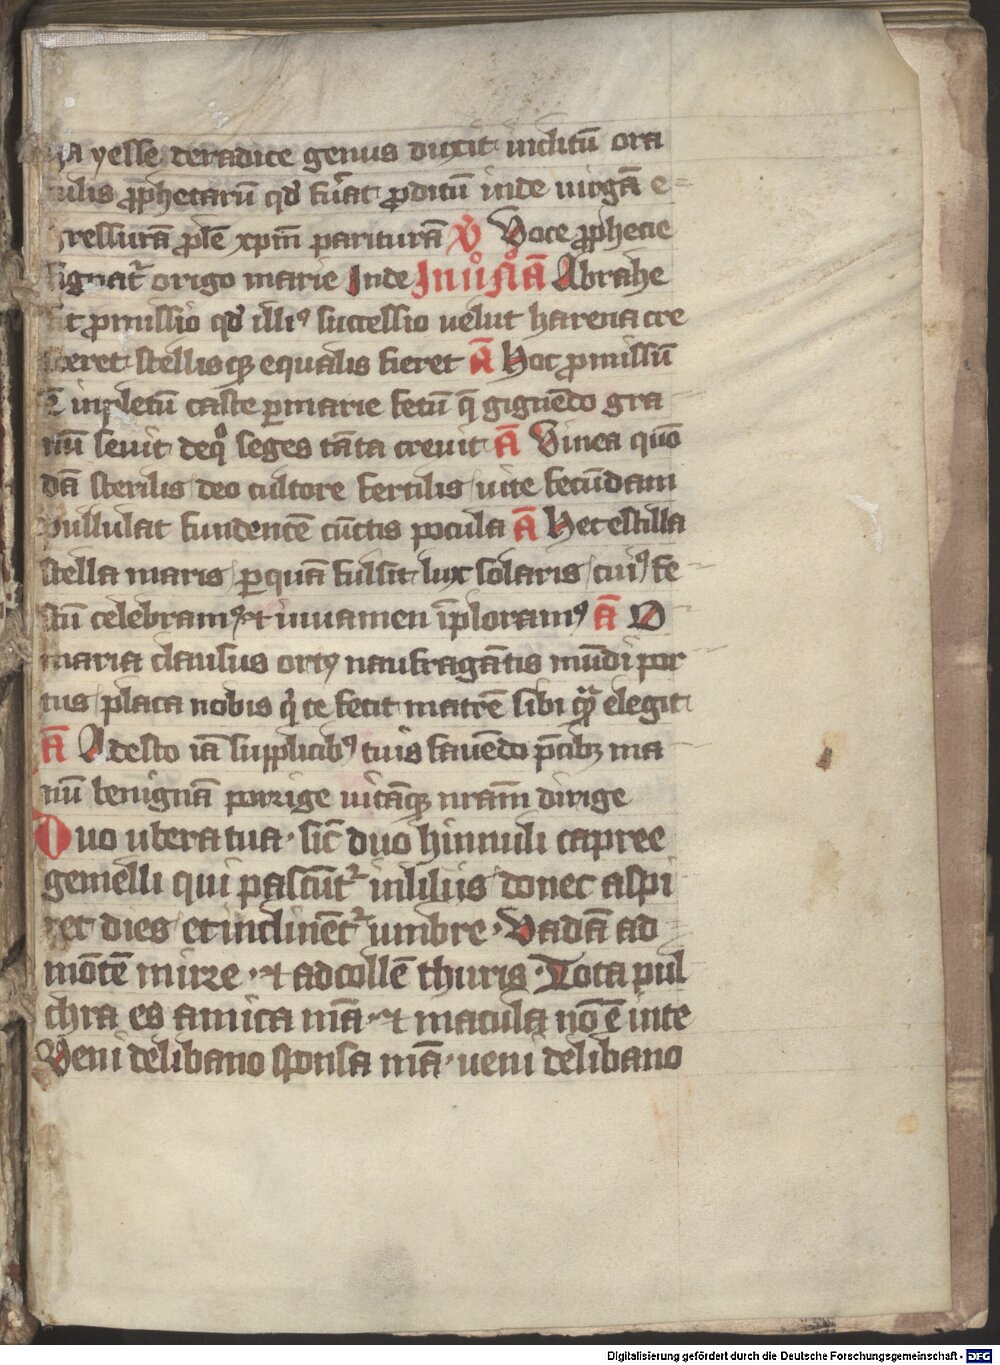 yesse de radice genus duxit inclitū ora
culis ꝓphetarū qd̛ fu̾at ꝓditū inde uirgā e=
gressurā ꝓlē xp̄m pariturā V̾ Voce ꝓphecie
signat᷑ origo marie Inde In iiͦ nͦ ā Abrahe
fit ꝓmissio qd̛ illiꝰ successio uelut harena cre
sceret stellisqꝫ equalis fieret ā Hoc ꝓmissū
ē inpletū caste ꝑ marie fetū q̄ gignēdo gra
nū seuit deqͦ seges tāta creuit ā Vinea quō
dā sterilis deo cultore fertilis uite fecūdam
pullulat fundentē cūctis pocula ā Hec est illa
stella maris ꝑ quā fulsit lux solaris cuiꝰ fe=
stū celebramꝰ ⁊ iuuamen īploramꝰ ā O
maria clausus ortꝰ naufragātis mūdi por
tus placa nobis q̇ te fecit matrē sibi elegit
ā Adesto iā supplicibꝰ tuis fauēdo p̄cibꝫ ma
nū benignā porrige uitāqꝫ nr̄am dirige
Duo ubera tua· sic̄ duo hinnuli capree
gemelli qui pascūt᷑ in liliis donec aspi
ret dies et inclinēt᷑ umbre· Vadā ad
mōtē mirre ·⁊ ad collē thuris· Tota pul
chra es amica mā ·⁊ macula nō ē in te
Veni de libano sponsa mā· ueni de libano
Digitalisierung gefördert durch die Deutsche Forschungsgemeinschaft - DFG